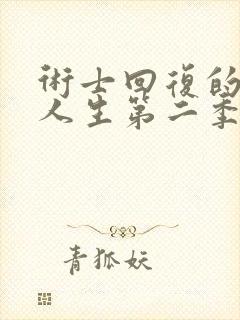 術士回復的
人生第二季
青狐妖